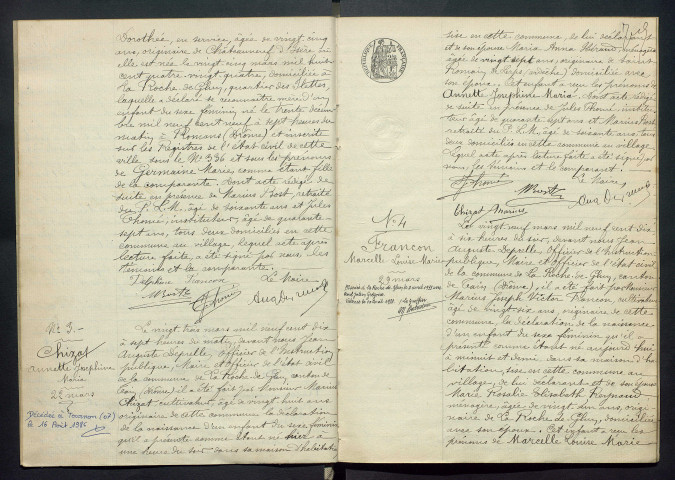 Dorothée, en service, âgée de vingt cinq
ans, originaire de Châteauneuf d'Isère où
elle est née le vingt cinq mars mil huit
cent quatre vingt quatre, domiciliée à
La Roche de Glun, quartier des
laquelle a déclaré se reconnaître mère d'un
enfant du sexe féminin, né le trente décem
bre mil neuf cent neuf à sept heures du
matin à Romans (Drôme) et inscrite
sur les registres de l'état civil de cette
ville sous le N° 336 et sous les prénoms
de Germaine Marie, comme étant fille
de la comparante. Dont acte rédigé de
suite en présence de Marius Bost, retraité
du P.L.M. âgé de soixante ans et Jules
Thomé, instituteur, âgé de quarante
sept ans, tous deux domiciliés en cette
commune au village, lequel acte après
lecture faite, a été signé par nous les
témoins et la comparante.
Le Maire
MBost
JThomé
N° 3.-
Chizat
Annette Joséphine
Maria
22 mars
Décédée à Tournon
le 16 Août 1986
Le vingt trois mars mil neuf cent dix
à sept heures du matin, devant nous Jean
Auguste Depelle, officier de l'Instruction
publique, Maire et officier de l'état civil
de la commune de La Roche de Glun, canton de
Tain, (Drôme) il a été fait par Monsieur Marius
Chizat cultivateur, âgé de vingt huit ans
originaire de cette commune la déclaration
de la naissance d'un enfant du sexe féminin
qu'il a présenté comme étant né hier à
une heure du soir dans sa maison d'habitation
sise en cette commune, de lui déclarant
et de son épouse Maria Anna Héraud, ménagère
âgée de vingt sept ans, originaire de Saint
Romain de Lerps (Ardèche) domiciliée avec
son époux. Cet enfant a reçu les prénoms de
Annette Joséphine Maria. Dont acte rédigé
de suite en présence de Jules Thomé, institu
teur âgé de quarante sept ans et Marius Bost
retraité du P.L.M. âgé de soixante ans, tous
deux domiciliés en cette commune au village
Lequel acte après lecture faite a été signé par
nous, les témoins et le comparant.
Le Maire,
JThomé
MBost
Chizat Marius
N° 4
Francon
Marcelle Louise Marie
29 mars
Le vingt neuf mars mil neuf cent dix
à six heures du soir, devant nous Jean
Auguste Depelle Officier de l'Instruction
publique, Maire et officier de l'état civil
de la commune de La Roche de Glun, canton
de Tain (Drôme), il a été fait par Monsieur
Marius Joseph Victor Francon, cultivateur
âgé de vingt six ans, originaire de cette
commune, la déclaration de la naissance
d'un enfant du sexe féminin qu'il a
présenté comme étant né aujourd'hui
à minuit et demi dans sa maison d'ha
bitation, sise en cette commune au
village, de lui déclarant et de son épouse
Marie Rosalie Elisabeth Reynaud,
ménagère, âgée de vingt un ans, origi
naire de La Roche de Glun, domiciliée
avec son époux. Cet enfant a reçu les
prénoms de Marcelle Louise Marie